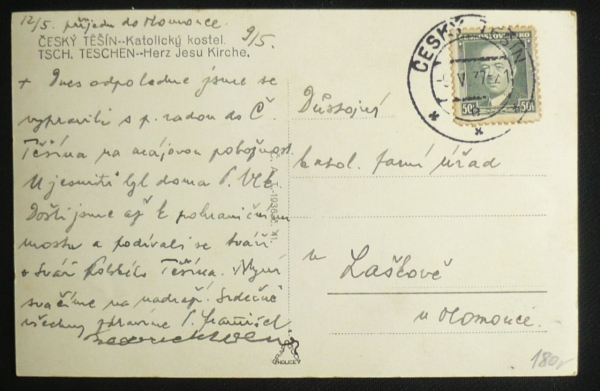 12/5. přijedu do Olomouce
9/5.
ČESKÝ TĚŠÍN--Katolický kostel.
TSCH. TESCHEN--Herz Jesu Kirche.
+ Dnes odpoledne jsme se
vypravili s p. radou do Č.
Těšína na májovou pobožnost.
U jesuitů byl doma P.
Došli jsme až k pohraničnímu
mostu a podívali se tváří
v tvář Polského Těšína. Nyní
svačíme na nádraží. Srdečně
všechny zdravíme P.
ČESKÝ TĚŠÍN
ČESKOSLOVENSKO
50h 50h
Důstojný
katol. farní úřad
v Laškově
u Olomouce.
180,-